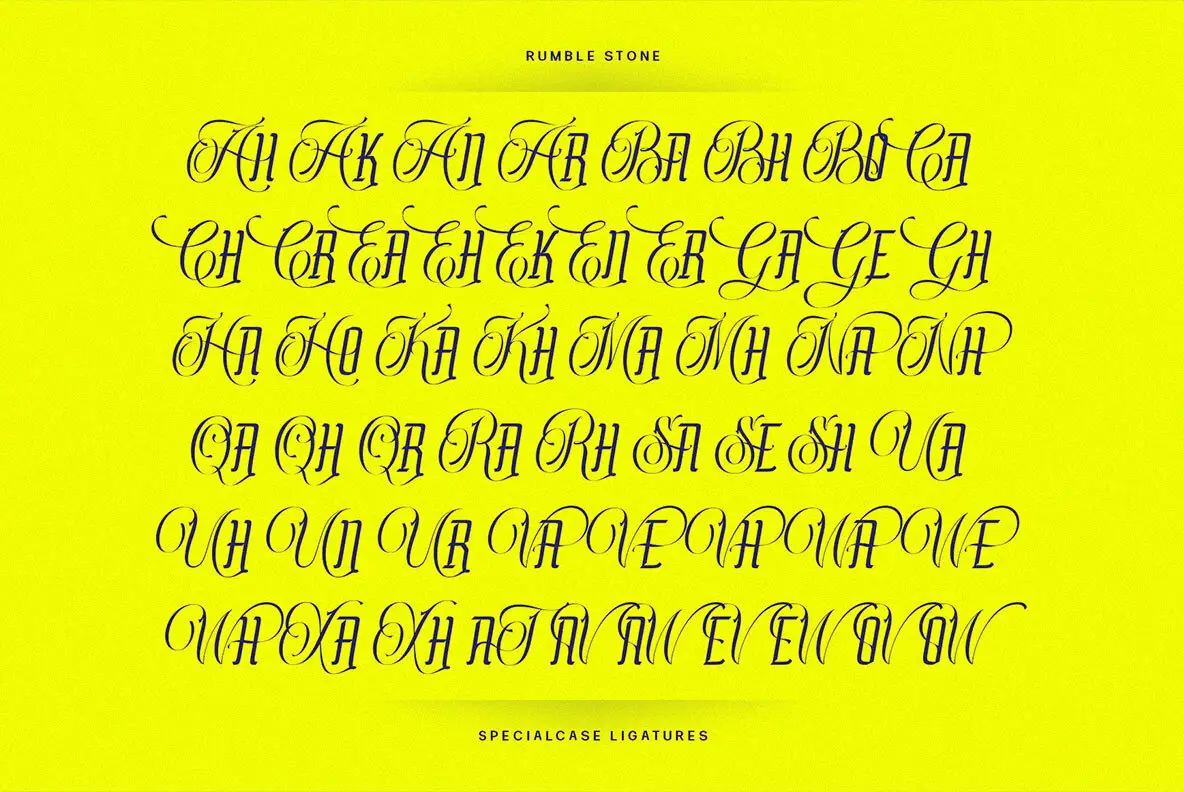 RUMBLE STONE
AH AK AN AR BA BH BO CA
CH CR EA EH EK EN ER GA GE GH
HA HO KA KH MA MH NA NH
QA QH QR RA RH SA SE SH UA
UH UN UR VA VE VH WA WE
WH XA XH AT AV AW EV EW OV OW
SPECIALCASE LIGATURES